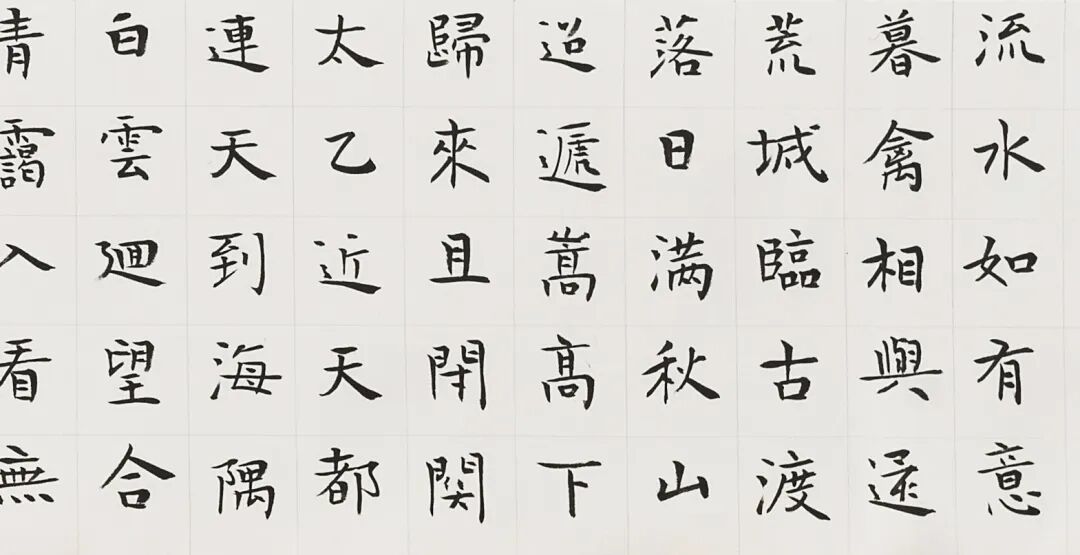 流水如有意
暮禽相與還
荒城臨古渡
落日满秋山
迢遞嵩高下
歸來且閉関
太乙近天都
連天到海隅
白雲迴望合
青靄入看無